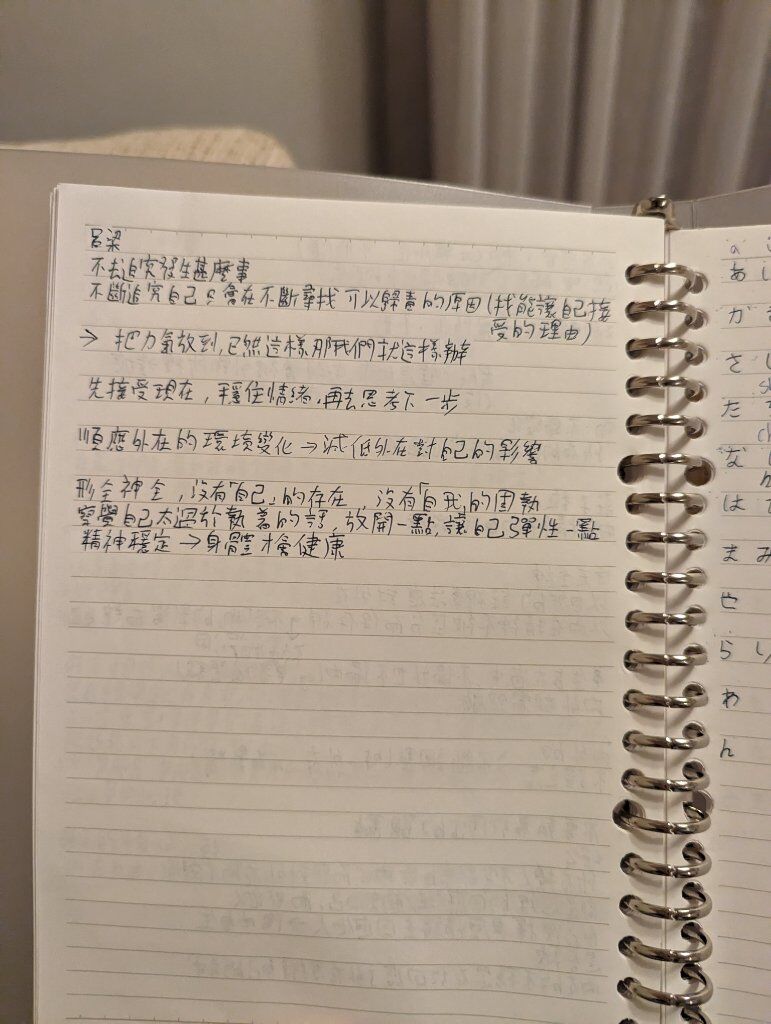 呂梁
不去追究發生甚麼事
不斷追究自己只會在不斷尋找可以歸責的原因(找能讓自己接
受的理由)
→ 把力氣放到,已然這樣那我們就這樣辦
先接受現在,穩住情緒,再去思考下一步
順應外在的環境變化→減低外在對自己的影響
形全神全,沒有「自己」的存在,沒有「自我」的固執
察覺自己太過於執著的話,放開一點,讓自己彈性一點
精神穩定→身體才會健康
あ
か
さ
た
な
は
ま み
や
ら り
わ
ん